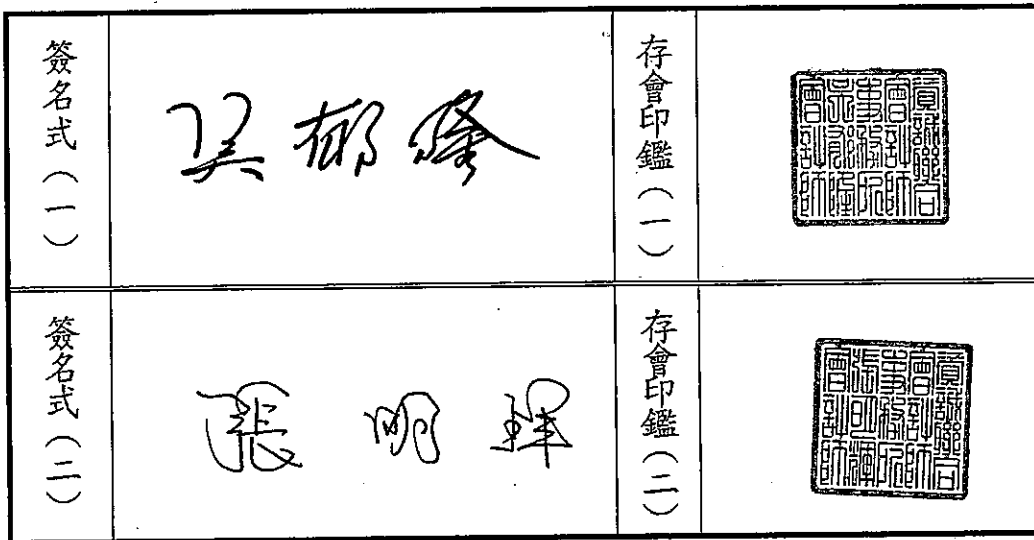 簽名式（一）
吳郁隆
存會印鑑（一）
資誠聯合
會計師
事務所
吳郁隆
會計師
簽名式（二）
張明輝
存會印鑑（二）
資誠聯合
會計師
事務所
張明輝
會計師